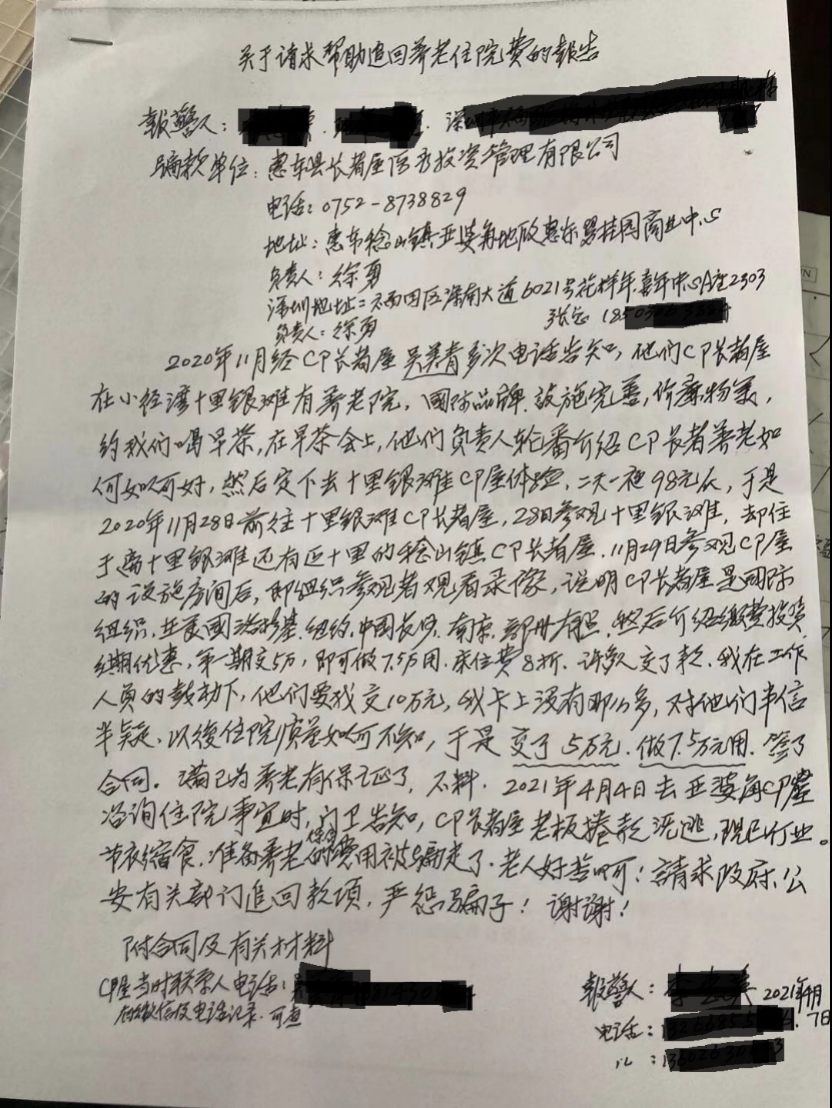 关于请求帮助追回养老住院费的報告
報警人:
骗款单位:惠东县长者屋医养投资管理有限公司
电话:0752-8738829
地址:惠东稔山镇亚婆角地段惠东碧桂园商业中心
负责人:徐勇
深圳地址:田区深南大道6021号花样年喜年中心A座2303
负责人:徐勇 张总
2020年11月经CP长者屋吴美青多次电话告知,他们CP长者屋
在小径湾十里银滩有养老院,国际品牌,设施完善,价廉物美,
约我们喝早茶,在早茶会上,他们负责人轮番介绍CP长者养老如
何如何好,然后定下去十里银滩CP屋体验,二天一夜98元/人,于是
2020年11月28日前往十里银滩CP长者屋,28日参观十里银滩,却住
于离十里银滩还有近十里的稔山镇CP长者屋.11月29日参观CP屋
的设施房间后,即组织参观者观看录像,说明CP长者屋是国际
组织,在美國洛杉基.纽约,中國长沙.南京.都册有照.然后介绍缴费投资
期优惠,第一期交5万,即可做7.5万用.床位費8折.许多人交了款.我在工作
人员的鼓动下,他们要我交10万元,我卡上没有那么多,对他们半信
半疑、以後住院情景如何不知,于是交了5万元.做7.5万元用.签了
合同。满已为养老有保证了,不料.2021年4月4日去亚婆角CP屋
咨询住院事宜时,门卫告知,CP长者屋老板捲款洗逃,现已停业。
节衣缩食.准备养老的费用被骗走了.老人好苦啊!請求政府.公
安有关部门追回款项,严惩骗子!谢谢!
附合同及有关材料
CP屋当时联系人电话:吴
微信及电话记录.可查
報警人: 2021年4月7日
电话: